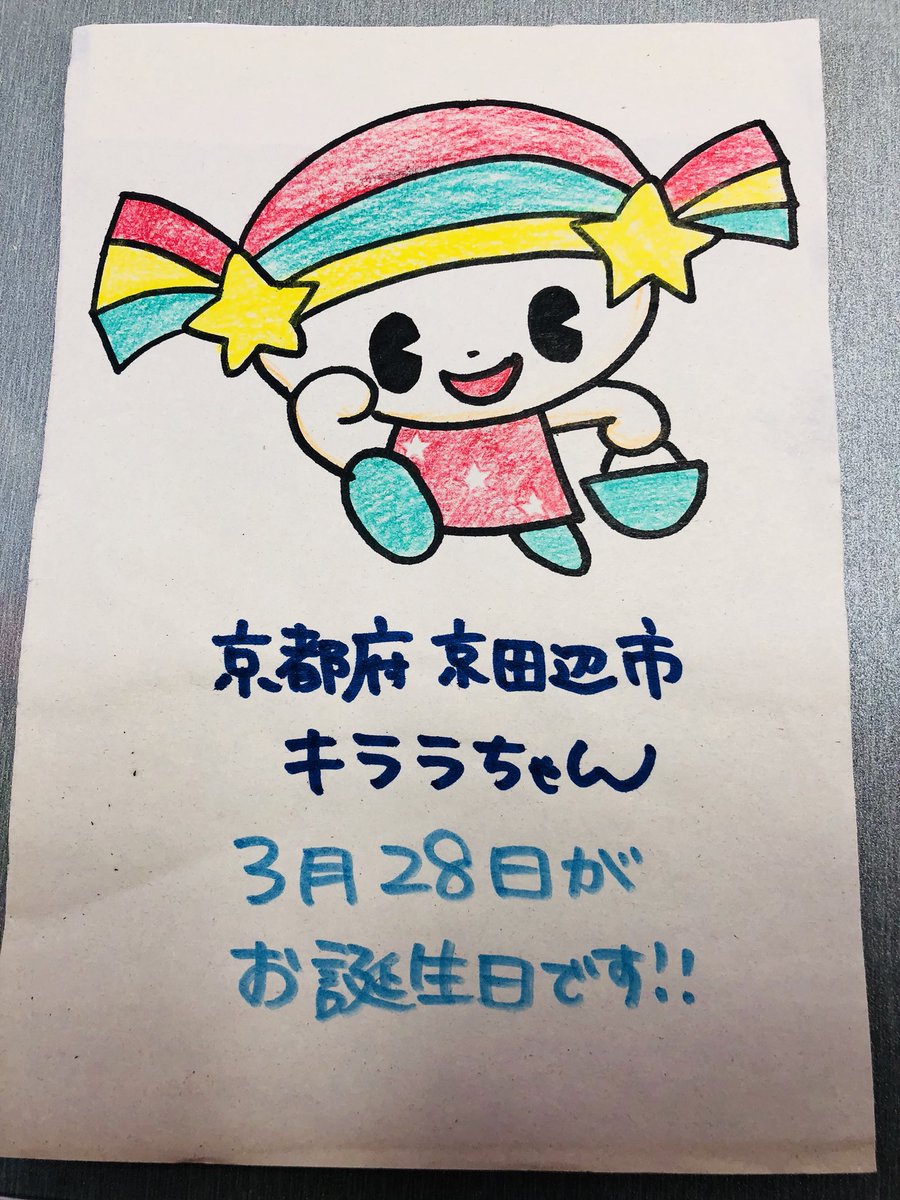 京都府 京田辺市
キララちゃん
3月28日が
お誕生日です!!